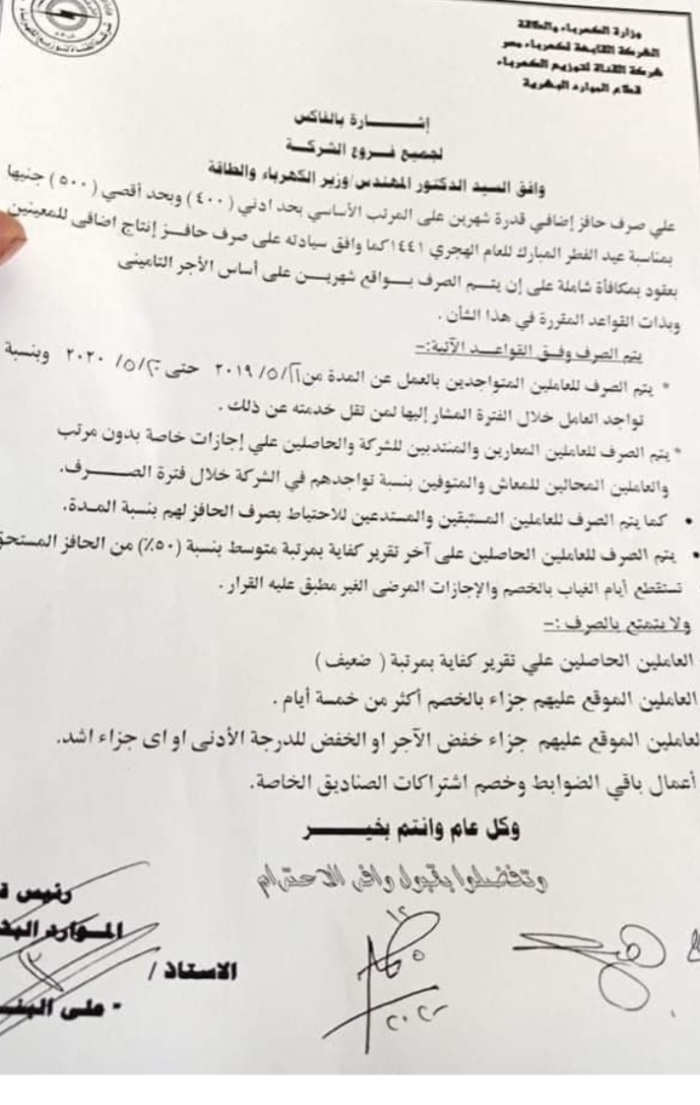 وزارة الكهرباء والطاقة
الشركة القابضة لكهرباء مصر
شركة القناة لتوزيع الكهرباء
قطاع الموارد البشرية
إشـــــارة بالفاكس
لجميع فـروع الشركـة
وافق السيد الدكتور المهندس/وزير الكهرباء والطاقة
علي صرف حافز إضافي قدرة شهرين على المرتب الأساسي بحد ادني (٤٠٠) وبحد أقصي (٥٠٠) جنيها
بمناسبة عيد الفطر المبارك للعام الهجري ١٤٤١ كما وافق سيادته على صرف حافــز إنتاج اضافى للمعينين
بعقود بمكافأة شاملة على إن يتــم الصرف بـواقع شهريــن على أساس الأجر التامينى
وبذات القواعد المقررة في هذا الشأن .
يتم الصرف وفـق القواعـد الآتية:-
* يتم الصرف للعاملين المتواجدين بالعمل عن المدة من ٢١/٥/٢٠١٩ حتى ٢٠/٥/٢٠٢٠ وبنسبة
تواجد العامل خلال الفترة المشار إليها لمن تقل خدمته عن ذلك .
* يتم الصرف للعاملين المعارين والمنتدبين للشركة والحاصلين علي إجازات خاصة بدون مرتب
والعاملين المحالين للمعاش والمتوفين بنسبة تواجدهم في الشركة خلال فترة الصـــرف.
• كما يتم الصرف للعاملين المستبقين والمستدعين للاحتياط بصرف الحافز لهم بنسبة المـدة.
• يتم الصرف للعاملين الحاصلين على آخر تقرير كفاية بمرتبة متوسط بنسبة (٥٠٪) من الحافز المستحق
تستقطع أيام الغياب بالخصم والإجازات المرضى الغير مطبق عليه القرار .
ولا يتمتع بالصرف :-
العاملين الحاصلين علي تقرير كفاية بمرتبة ( ضعيف )
العاملين الموقع عليهم جزاء بالخصم أكثر من خمسة أيام .
لعاملين الموقع عليهم جزاء خفض الآجر او الخفض للدرجة الأدنى او اى جزاء اشد.
أعمال باقي الضوابط وخصم اشتراكات الصناديق الخاصة.
وكل عام وانتم بخيـــر
وتفضلوا بقبول وافر الاحترام
رئيس
الموارد
الاستاذ /
على
٢٠٢٠